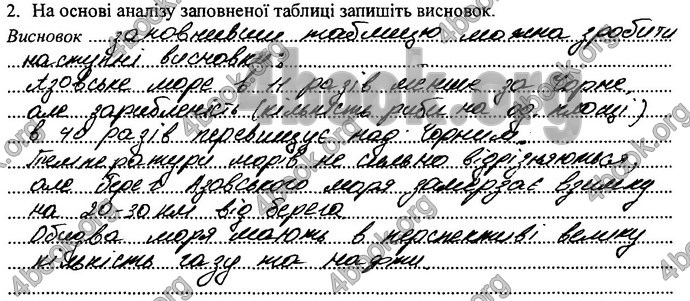 2. На основі аналізу заповненої таблиці запишіть висновок.
Висновок заповнивши таблицю можна зробити
наступні висновки:
Азовське море в 11 разів менше за Чорне,
але зарибленість (кількість риби на од. площі)
в 40 разів перевищує над Чорним.
Температури морів не сильно відрізняються
але берег Азовського моря замерзає взимку
на 20-30 км від берега
Обидва моря мають в перспективі велику
кількість газу та нафти.
4book.org